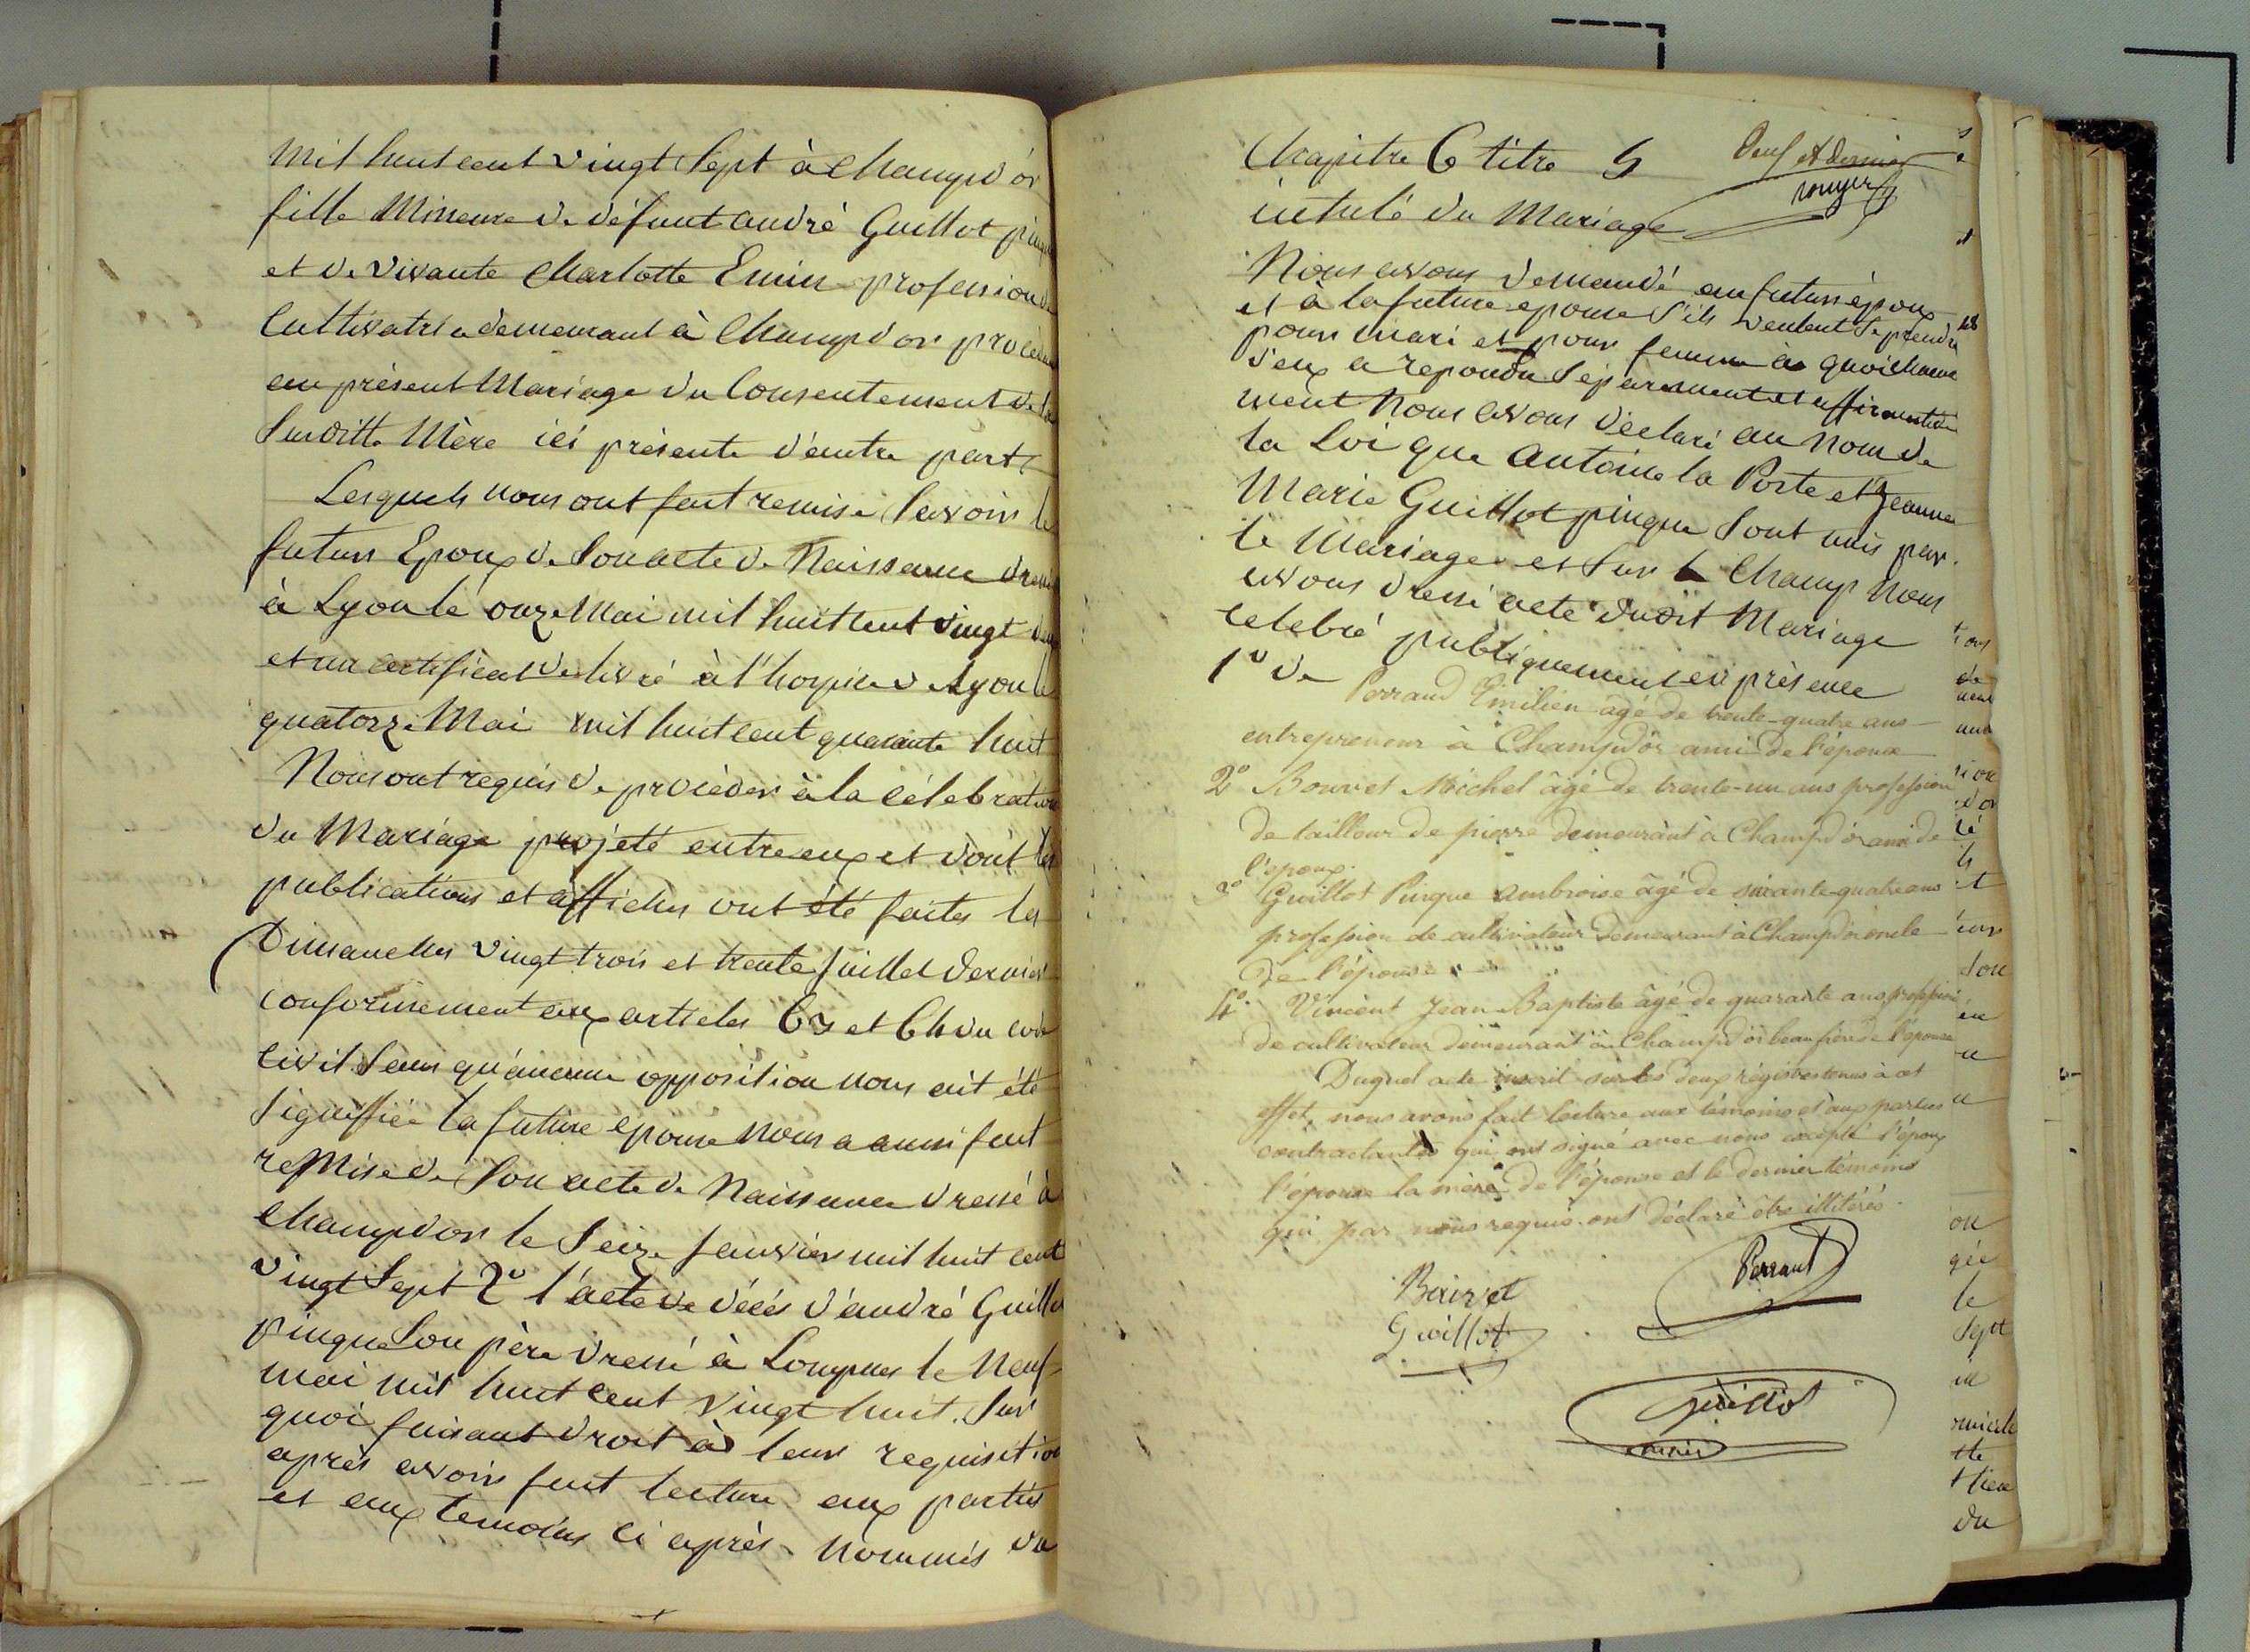 mil huit cent vingt Sept à Champd'or
fille Mineure de défunt andré Guillot pinque
et de vivante Charlotte Emin profession de
Cultivatrice demeurant à Champd'or procédant
au présent Mariage du Consentement de la
Susditte Mère ici présente d'autre part
Lesquels nous ont fait remise Savoir le
futur Epoux de Son acte de Naissance dressé
à Lyon le onze Mai mil huit cent vingt deux
et un certificat delivré à l'hospice de Lyon le
quatorze Mai mil huit cent quarante huit
Nous ont requis de procéder à la célébration
du Mariage projeté entre eux et dont les
publications et affiches ont été faites les
Dimanches vingt trois et trente Juillet dernier
conformement aux articles 63 et 64 du code
civil Sans qu'aucune opposition nous ait été
Signifiée la future epouse nous a aussi fait
reMise de Son acte de Naissance dressé à
Champdor le Seize Janvier mil huit cent
vingt Sept 2° l'acte de décés d'andré Guillot
pinque Son père dressé à Lompnes le Neuf
mai mil huit cent vingt huit. Sur
quoi faisant droit à leur requisition
après avoir fait lecture aux parties
et aux temoins ci après nommés du
Chapitre 6 titre 5
neuf et dernier
rouyer
intitulé du Mariage
Nous avons demandé au futur époux
et à la future epouse S'ils veulent Se prendre
pour mari et pour femme à quoi chacun
d'eux a repondu Séparement et affirmative
ment Nous avons déclaré au Nom de
la Loi que Antoine la Porte et Jeanne
Marie Guillot pinque Sont unis par
le Mariage et Sur le Champ Nous
avons dressé acte dudit Mariage
celebré publiquement en présence
1° de Perraud Emilien agé de trente-quatre ans
entrepreneur à Champd'or ami de l'épouse
2° Bouvet Michel âgé de trente-un ans profession
de tailleur de pierre demeurant à Champd'or ami de
l'époux.
3° Guillot Pinque ambroise âgé de soixante-quatre ans
profession de cultivateur demeurant à Champd'or oncle
de l'épouse
4° Vincent Jean Baptiste âgé de quarante ans profession
de cultivateur demeurant à Champd'or beau frère de l'épouse
Duquel acte inscrit sur les deux régistres tenus à cet
effet, nous avons fait lecture aux témoins et aux parties
contractantes qui ont signé avec nous excepté l'époux
l'épouse la mère de l'épouse et le dernier témoins
qui par nous requis ont déclaré être illitérés.
Perraut
Bouvet
Guillot
Guillot